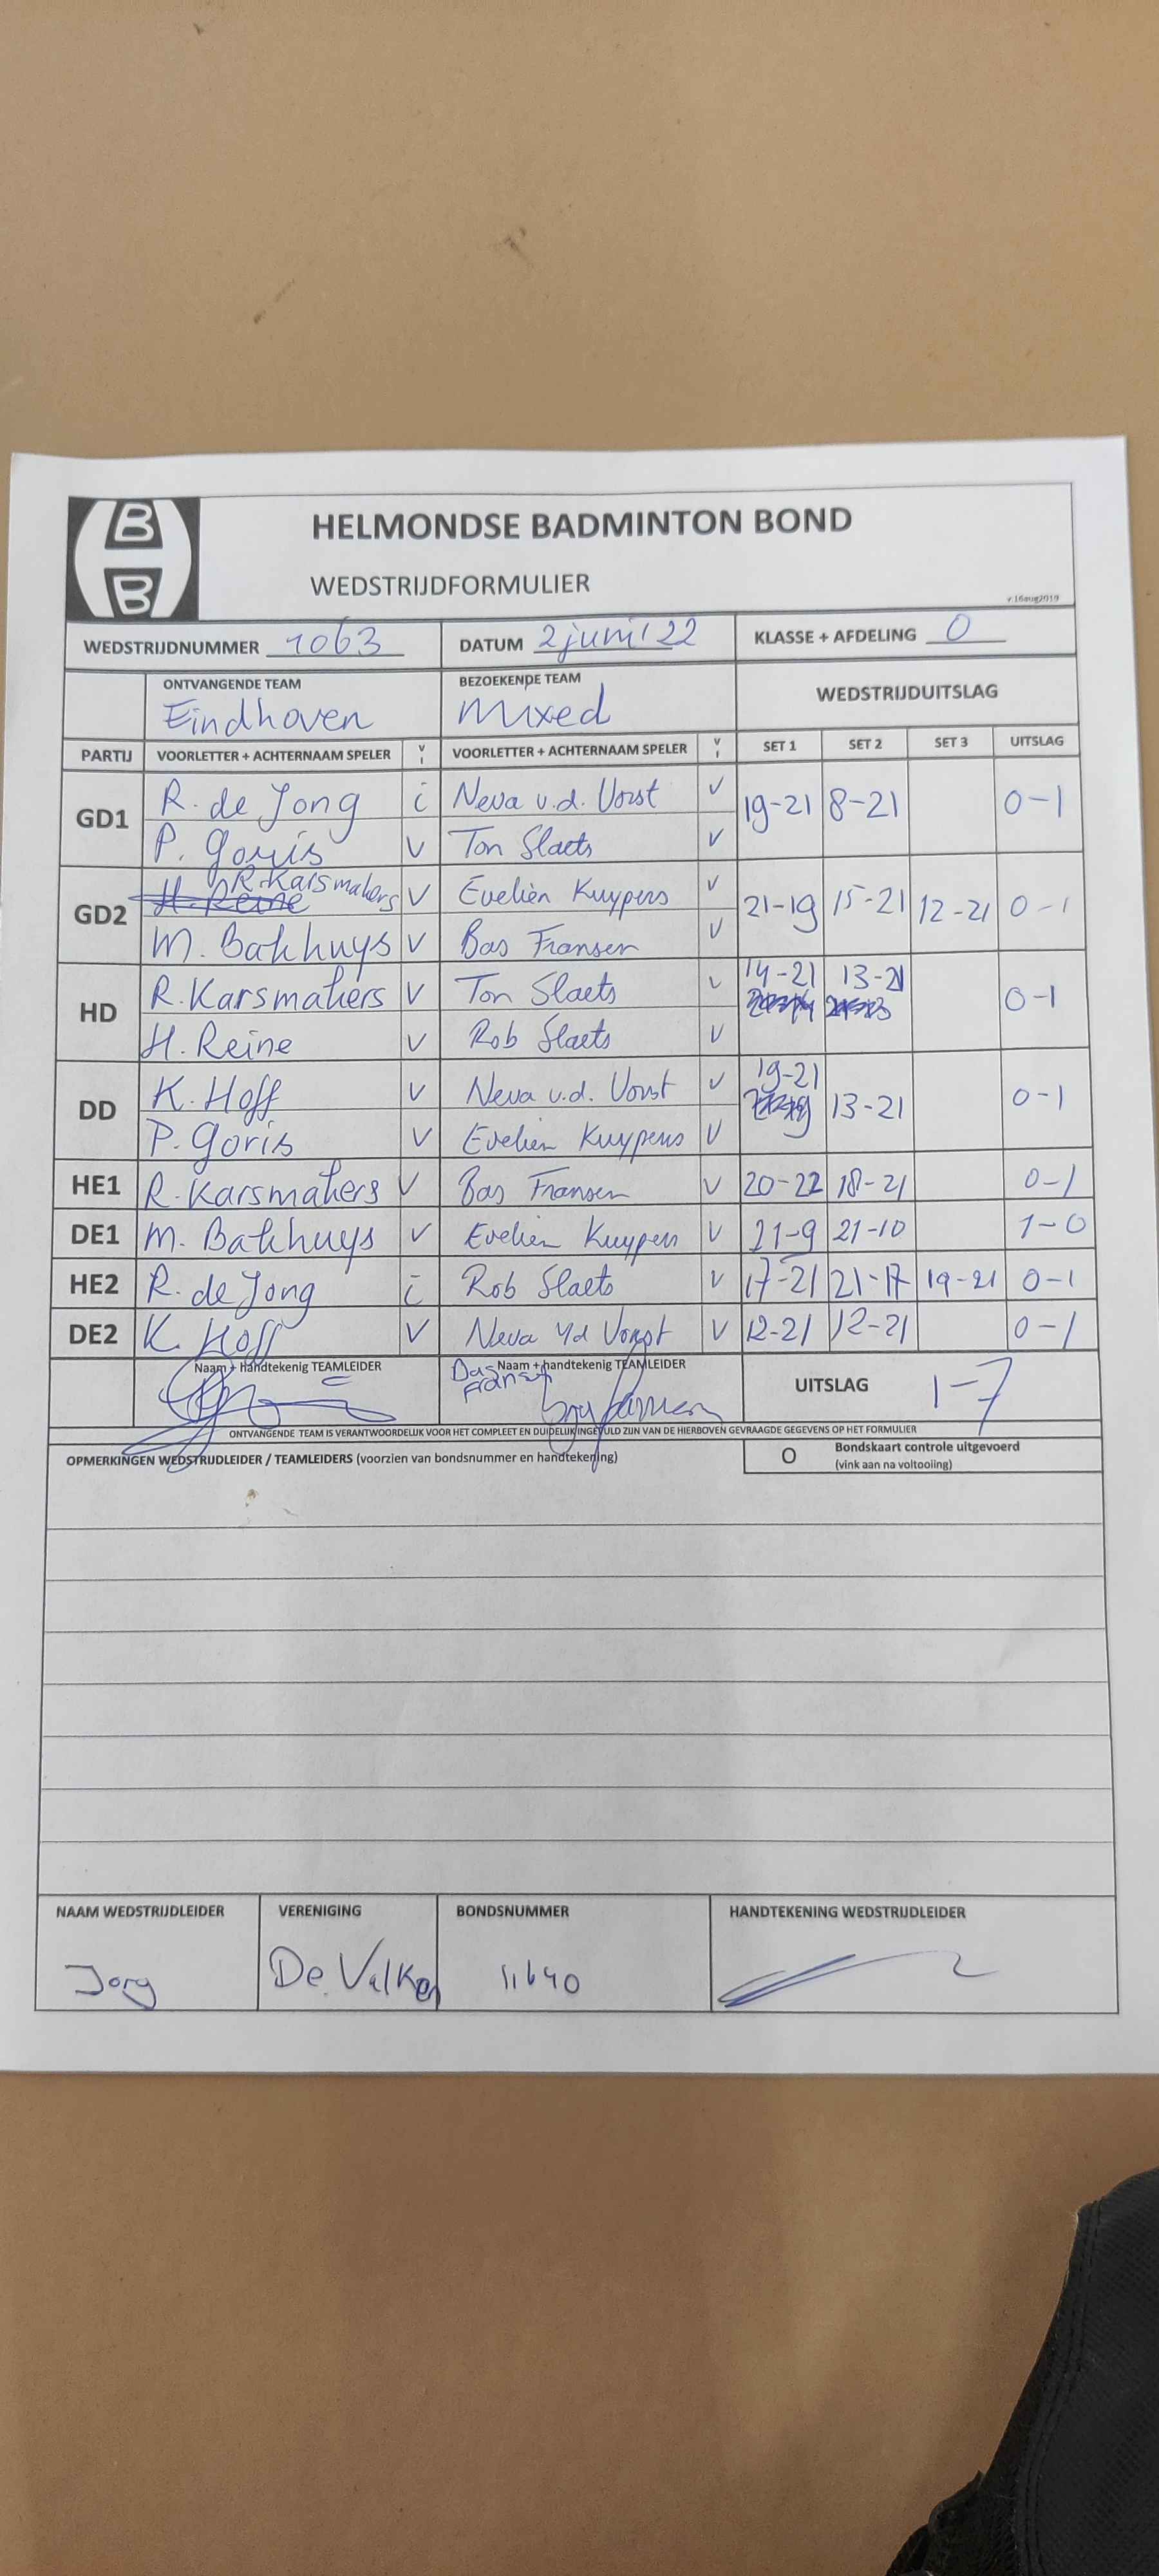 B
B
HELMONDSE BADMINTON BOND
WEDSTRIJDFORMULIER
v.16aug2019
WEDSTRIJDNUMMER 1063 DATUM 2 juni '22 KLASSE + AFDELING 0
ONTVANGENDE TEAM BEZOEKENDE TEAM WEDSTRIJDUITSLAG
Eindhoven Mixed
PARTIJ VOORLETTER + ACHTERNAAM SPELER V I VOORLETTER + ACHTERNAAM SPELER V I SET 1 SET 2 SET 3 UITSLAG
GD1 R. de Jong i Neva v.d. Vorst V 19-21 8-21 0-1
P. Goris V Ton Slaets V
GD2 H. Reine R. Karsmakers V Evelien Kuypers V 21-19 15-21 12-21 0-1
M. Bakhuys V Bas Fransen V
HD R. Karsmakers V Ton Slaets V 14-21 13-21 0-1
H. Reine V Rob Slaets V
DD K. Hoff V Neva v.d. Vorst V 19-21 13-21 0-1
P. Goris V Evelien Kuypers V
HE1 R. Karsmakers V Bas Fransen V 20-22 18-21 0-1
DE1 M. Bakhuys V Evelien Kuypers V 21-9 21-10 1-0
HE2 R. de Jong i Rob Slaets V 17-21 21-17 19-21 0-1
DE2 K. Hoff V Neva v/d Vorst V 12-21 12-21 0-1
Naam + handtekenig TEAMLEIDER Bas Fransen Naam + handtekenig TEAMLEIDER UITSLAG 1-7
ONTVANGENDE TEAM IS VERANTWOORDELIJK VOOR HET COMPLEET EN DUIDELIJK INGEVULD ZIJN VAN DE HIERBOVEN GEVRAAGDE GEGEVENS OP HET FORMULIER
OPMERKINGEN WEDSTRIJDLEIDER / TEAMLEIDERS (voorzien van bondsnummer en handtekening) O Bondskaart controle uitgevoerd
(vink aan na voltooiing)
NAAM WEDSTRIJDLEIDER VERENIGING BONDSNUMMER HANDTEKENING WEDSTRIJDLEIDER
Jorg De Valken 11640